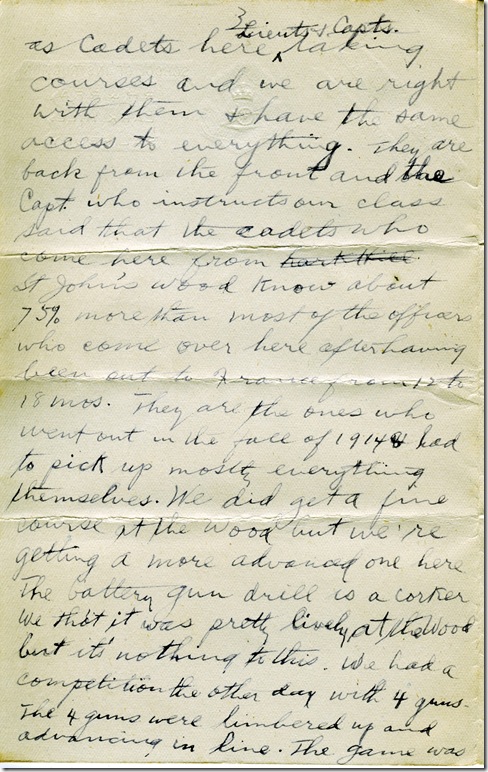 & Lieuts & Capts.
as Cadets here ^ taking
courses and we are right
with them & have the same
access to everything. They are
back from the front and the
Capt. who instructs our class
said that the cadets who
come here from
St John's Wood know about
75% more than most of the officers
who come over here after having
been out to France from 12 to
18 mos. They are the ones who
went out in the face of 1914 & had
to pick up mostly everything
themselves. We did get a fine
course at the Wood but we're
getting a more advanced one here
The battery gun drill is a corker
We tho't it was pretty lively at the Wood
but it's nothing to this. We had a
competition the other day with 4 guns.
The 4 guns were limbered up and
advancing in line. The game was